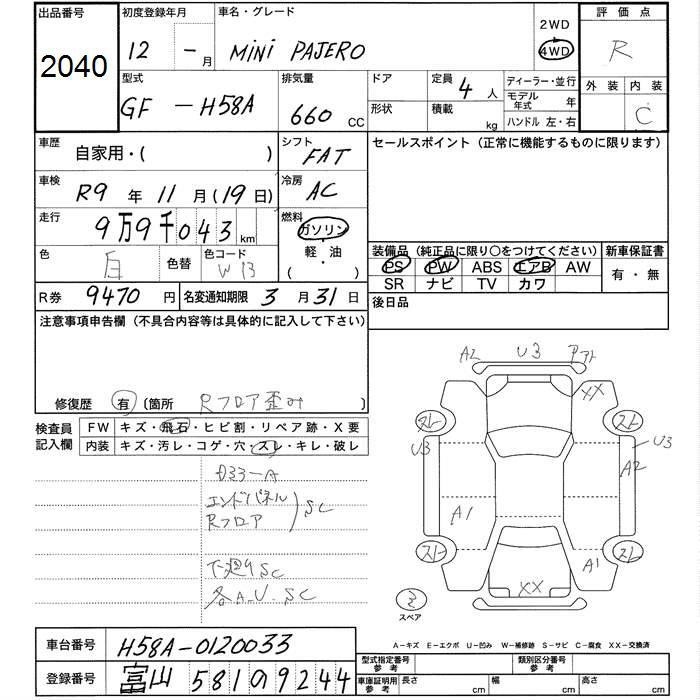 出品番号 初度登録年月 車名・グレード 評価点
2040 12 - 月 MINI PAJERO 2WD 4WD R
型式 排気量 ドア 定員 4 人 ディーラー・並行 外装 内装
GF - H58A 660 CC 形状 積載 kg モデル年式 年 C
ハンドル 左・右
車歴 自家用・( ) シフト FAT セールスポイント (正常に機能するものに限ります)
車検 R9 年 11 月 (19 日) 冷房 AC
走行 9万9千043 km 燃料 ガソリン
軽・油
( )
色 白 色替 色コード W13
装備品 (純正品に限り○をつけてください) 新車保証書
PS PW ABS エアB AW 有・無
SR ナビ TV カワ
R券 9470 円 名変通知期限 3 月 31 日 後日品
注意事項申告欄 (不具合内容等は具体的に記入して下さい)
修復歴 有 (箇所 Rフロア歪み )
検査員記入欄 FW キズ・飛石・ヒビ割・リペア跡・X要
内装 キズ・汚レ・コゲ・穴・スレ・キレ・破レ
エンドパネル
Rフロア SC
下廻りSC
各A.U.SC
A2 U3
XX
スト スト
U3 U3
A2
A1
スト スト
A1
XX
スペア
A-キズ E-エクボ U-凹み W-補修跡 S-サビ C-腐食 XX-交換済
車台番号 H58A-0120033
登録番号 富山 581 9244
型式指定番号 参考 類別区分番号 参考
車庫証明用 参考 長さ cm 幅 cm 高さ cm